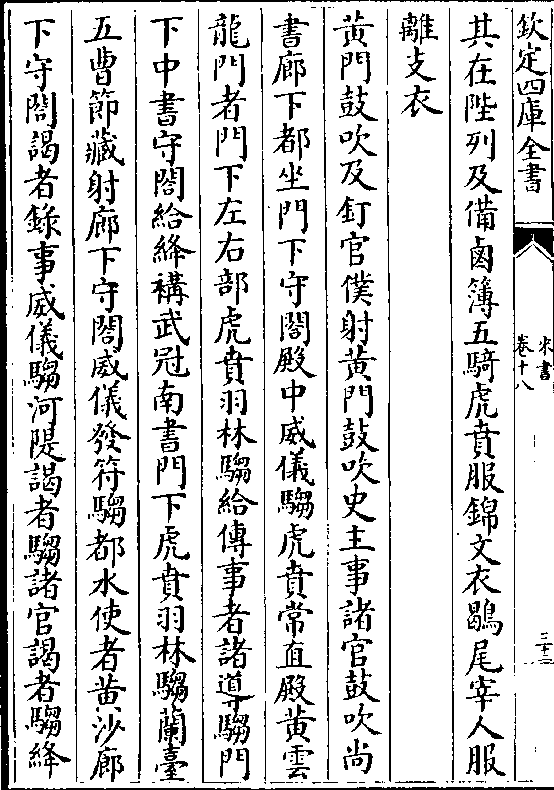 欽定四庫全書
宋書
卷十八
三十二
其在陛列及備鹵簿五騎虎賁服錦文衣鶡尾宰人服
離支衣
黃門鼓吹及釘官僕射黃門鼓吹史主事諸官鼓吹尚
書廊下都坐門下守閤殿中威儀騶虎賁常直殿黃雲
龍門者門下左右部虎賁羽林騶給傳事者諸導騶門
下中書守閤給絳褠武冠南書門下虎賁羽林騶蘭臺
五曹節藏射廊下守閤威儀發符騶都水使者黃沙廊
下守閤謁者錄事威儀騶河隄謁者騶諸官謁者騶絳